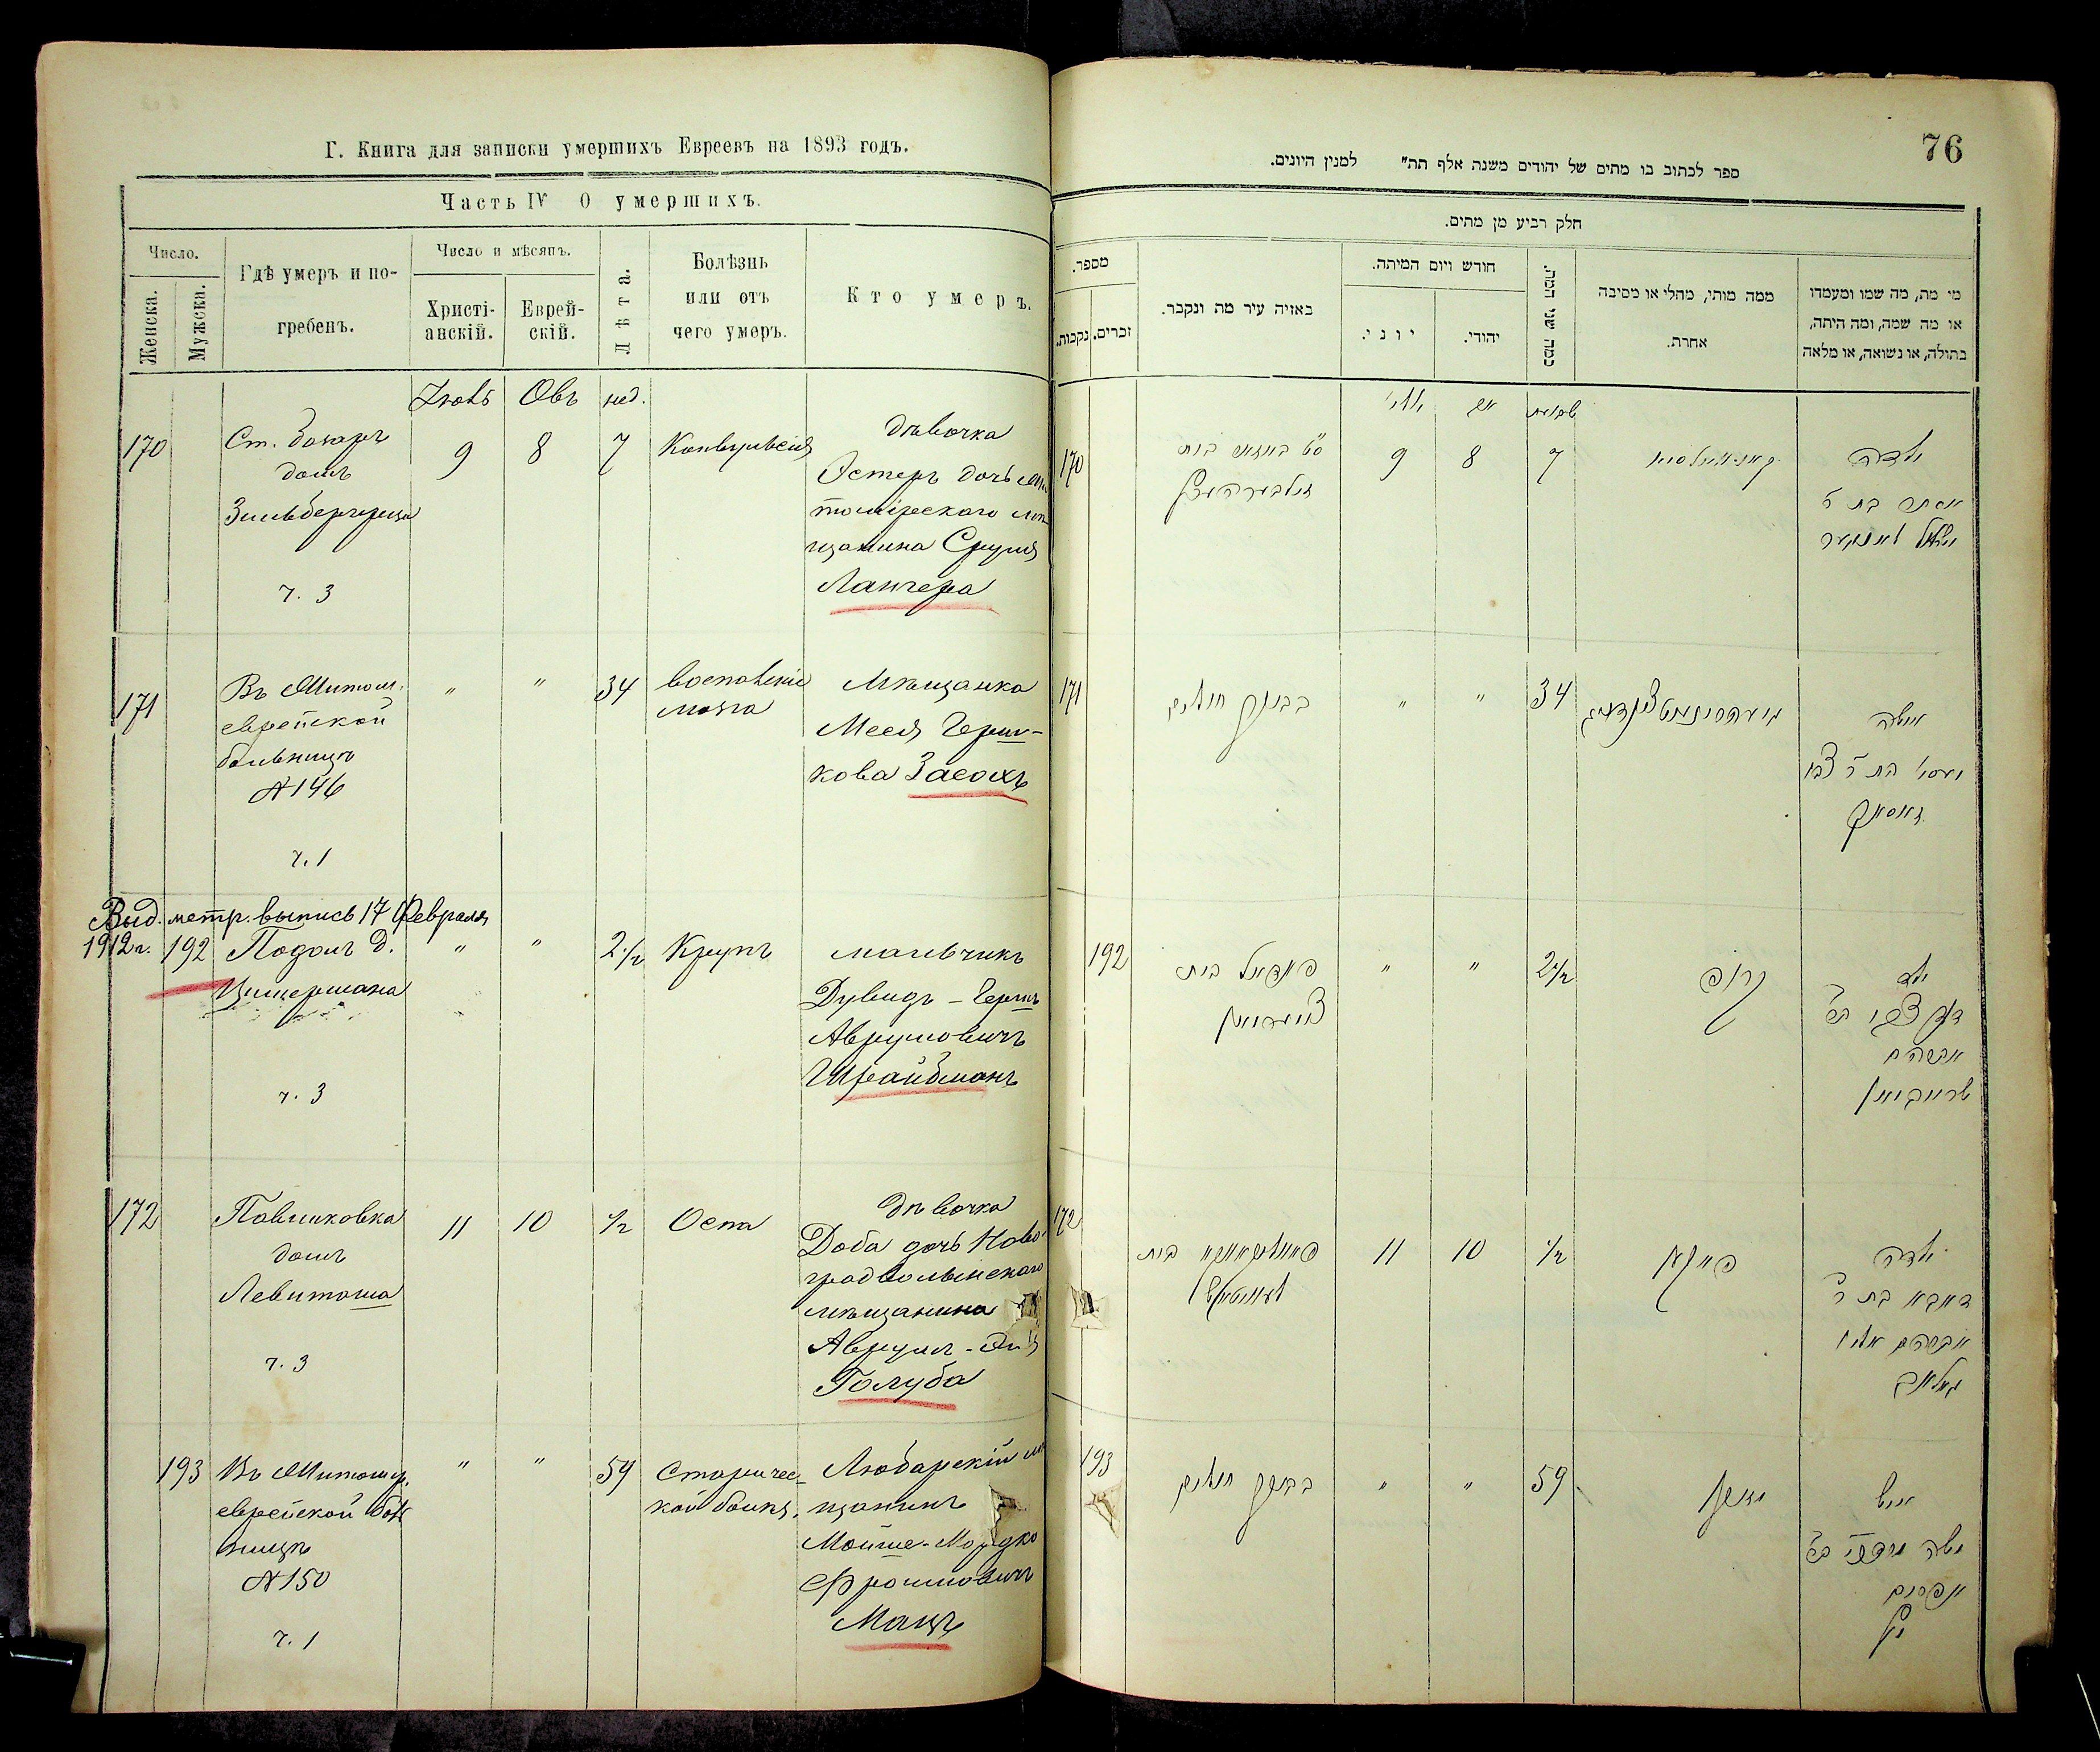 Г. Книга для записки умершихъ Евреевъ на 1893 годъ.
Часть IV О умершихъ.
Число.
Женска.
Мужска.
Гдѣ умеръ и по-
гребенъ.
Число и мѣсяцъ.
Христі-
анскій.
Еврей-
скій.
Лѣта.
Болѣзнь
или отъ
чего умеръ.
Кто умеръ.
Іюль Овъ нед.
170
Ст. базаръ
домъ
ч. 3
9 8 7
Конвульсія
дѣвочка
Эстеръ дочь
томірскаго мѣ
щанина Сруля
Лангера
171
Въ Житом.
еврейской
больницѣ
№ 146
ч. 1
" " 34
Воспаленіе
мозга
Мѣщанка
Мееля Герш-
кова Засокъ
Выд. метр. выпись 17 Февраля
1912 г. 192
Подолъ д.
Цимермана
ч. 3
" " 2 1/2
Крупъ
мальчикъ
Дувидъ-Гершъ
Аврумовичъ
Шрайбманъ
172
Павликовка
домъ
Левитоша
ч. 3
11 10 1/2
Оспа
дѣвочка
Доба дочь Ново-
градволынскаго
мѣщанина
Аврумъ-
Голуба
193
Въ Житомір.
еврейской бол
ницѣ
№ 150
ч. 1
" " 59
Старичес-
кой болѣз.
Любарскій мѣ
щанинъ
Мойше-Мордко
Фроимовичъ
Манзъ
76
ספר לכתוב בו מתים של יהודים משנת אלף תת״ למנין היונים.
חלק רביעי מן מתים.
מספר.
נקבות.
זכרים.
באיזה עיר מת ונקבר.
חודש ויום המיתה.
יוני.
יהודי.
כמה שני המת.
ממה מותו, מחלי או מסיבה
אחרת.
מי מת, מה שמו ומעמדו
או מה שמה, ומה היתה,
בתולה, או נשואה, או מלאה
יולי אב שבועות
170
סט באזאר בית
זילבערהערץ
9 8 7
ילדה
אסתר בת ר׳
ישראל לאנגער
171
בבית חולים
" " 34
אשה
זאסאק
192
פאדאל בית
צימערמאן
" " 2 1/2
קרופ
ילד
דוד צבי ב״ר
אברהם
שרייבמאן
172
פאוולikאווקא בית
11 10 1/2
פאקין
ילדה
דאבא בת ר׳
אברהם
גאלוב
193
בבית חולים
" " 59
זקנה
איש
משה מרדכי ב״ר
אפרים